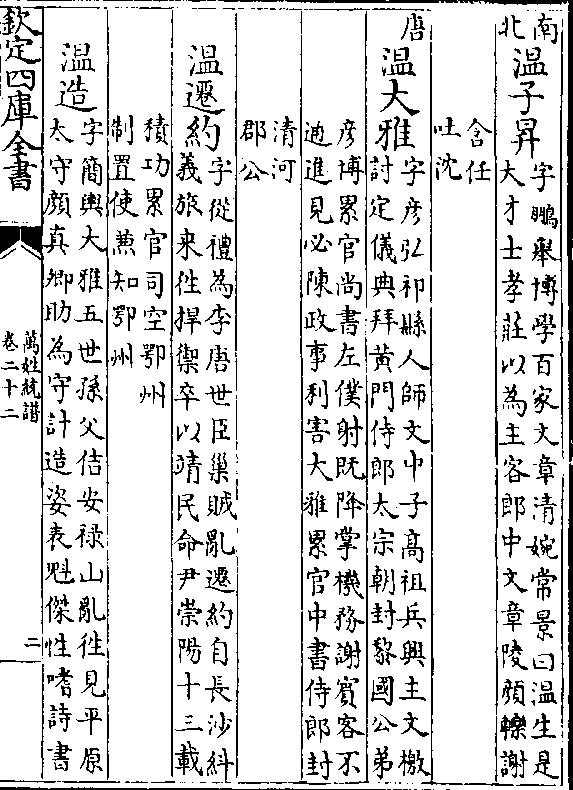 南北
温子昇
字鵬舉博學百家文章清婉常景曰温生是
大才士孝莊以為主客郎中文章陵顔轢謝
含任
吐沈
唐
温大雅
字彦弘祁縣人師文中子高祖兵興主文檄
討定儀典拜黃門侍郎太宗朝封黎國公弟
彦博累官尚書左僕射既降掌機務謝賓客不
通進見必陳政事利害大雅累官中書侍郎封
清河
郡公
温遷約
字從禮為李唐世臣巢賊亂遷約自長沙糾
義旅来徃捍禦卒以靖民命尹崇陽十三載
積功累官司空鄂州
制置使兼知鄂州
温造
字簡輿大雅五世孫父佶安禄山亂徃見平原
太守顔真卿助為守計造姿表魁傑性嗜詩書
欽定四庫全書
萬姓統譜
卷二十二
二